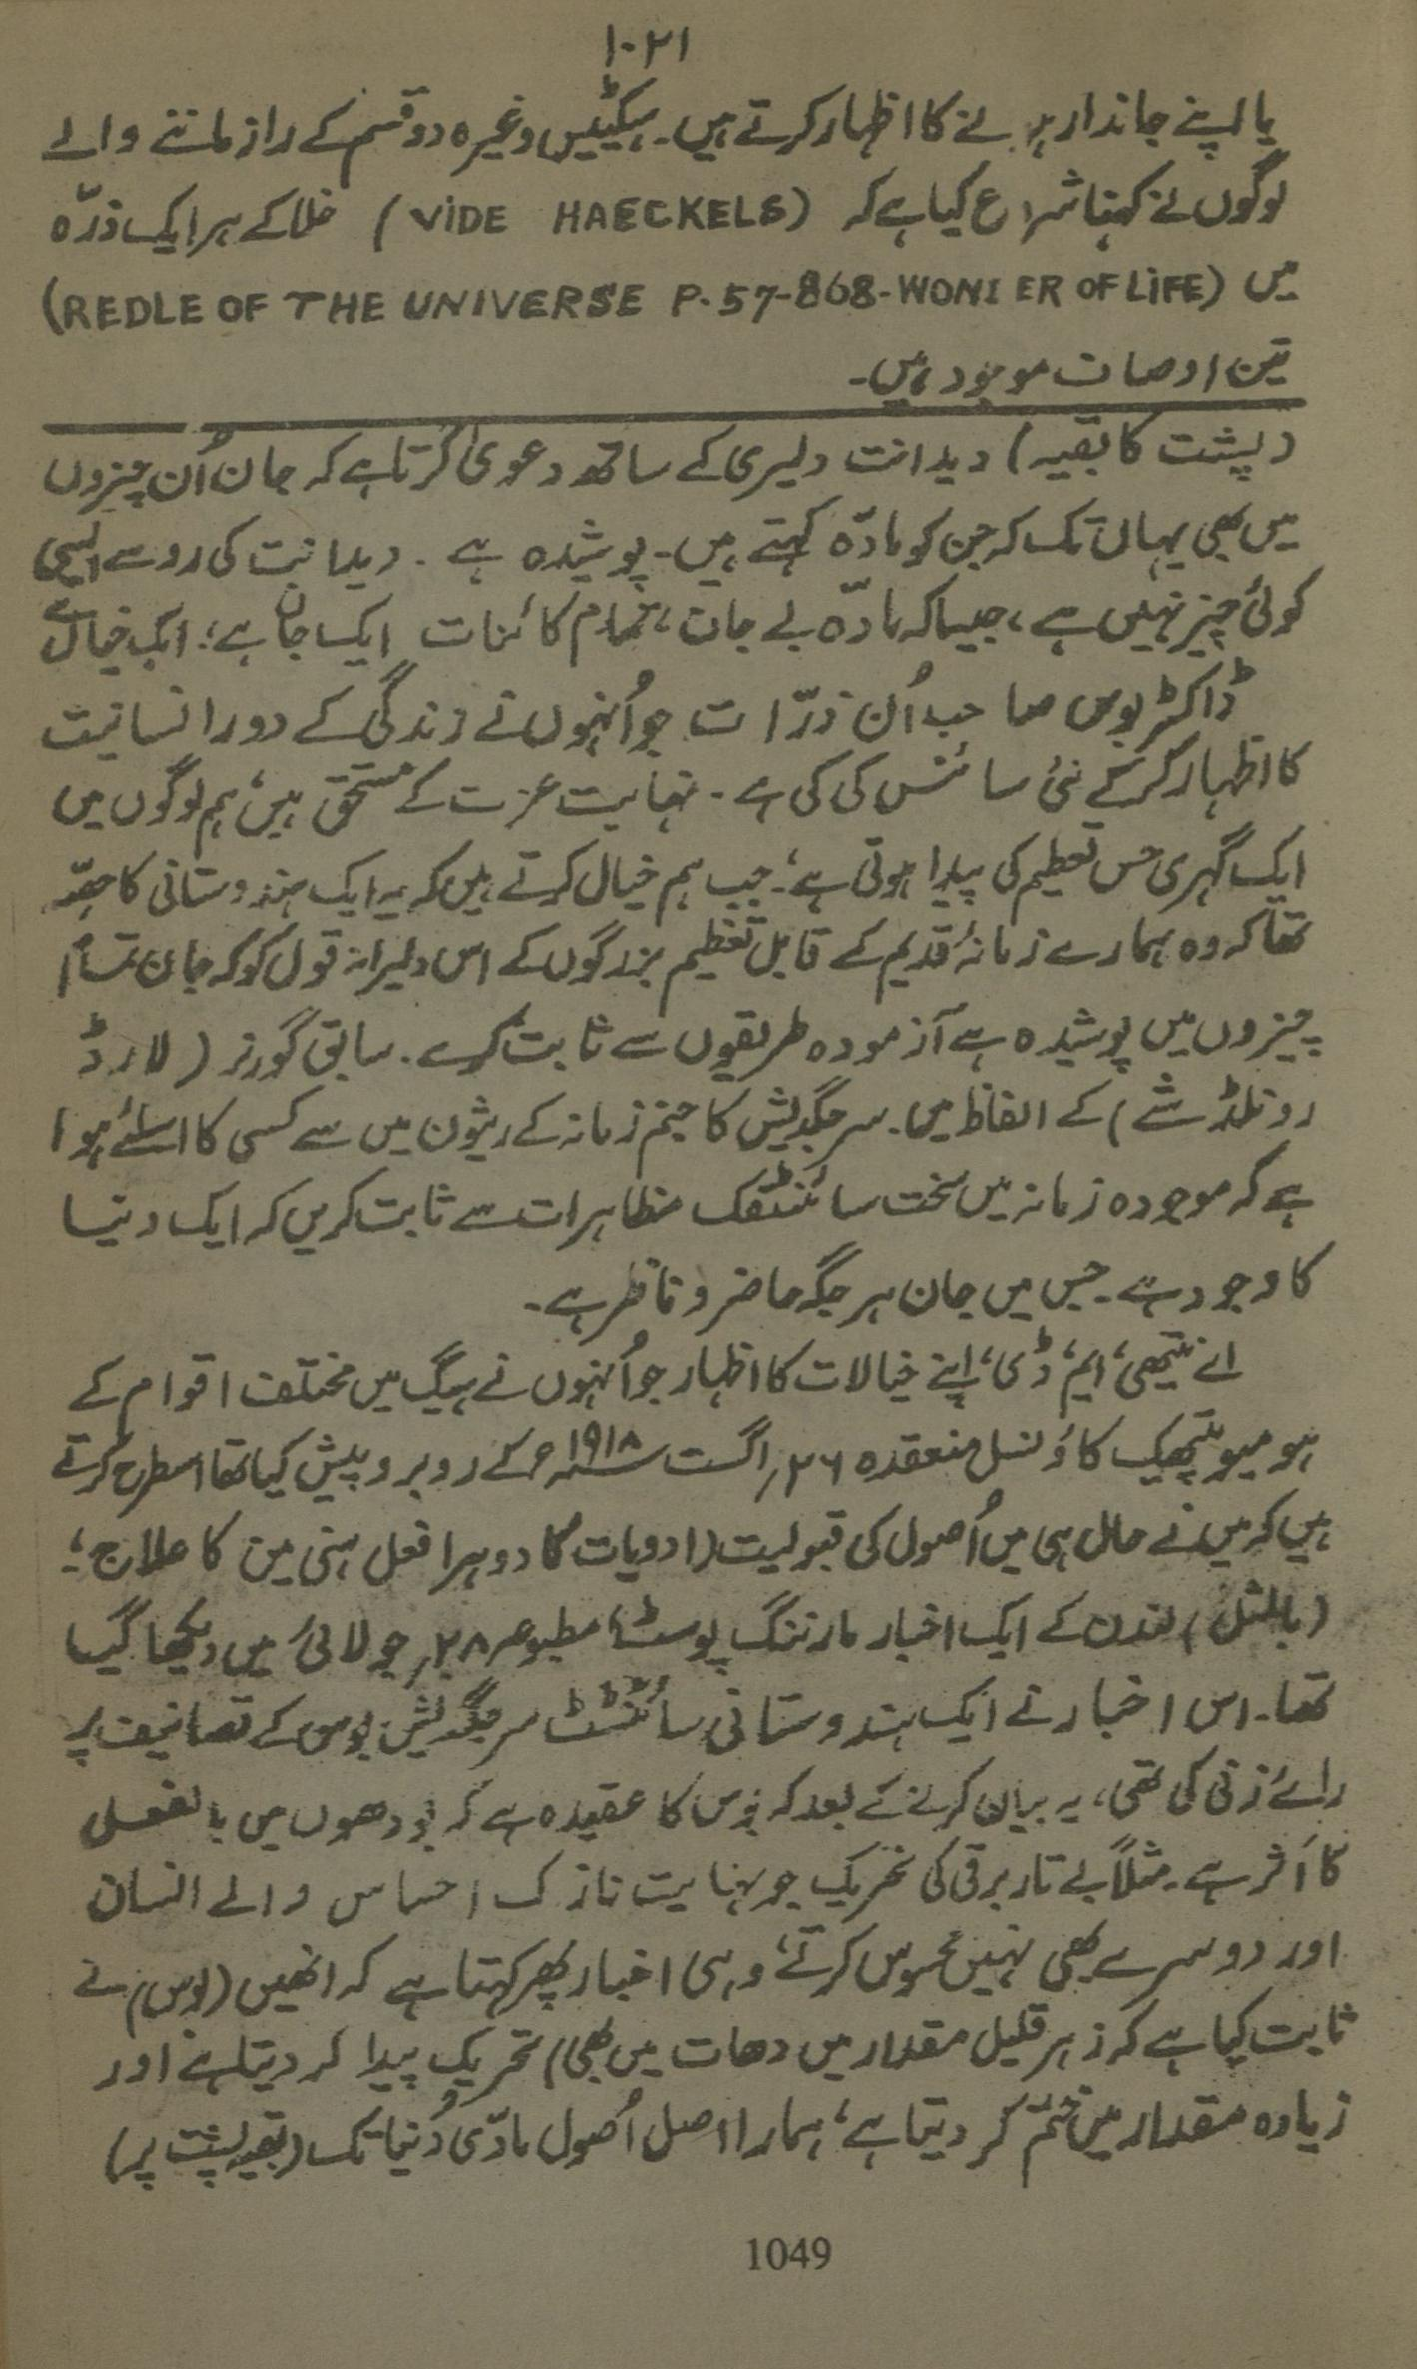 ۱۰۲۱
یا اپنے جاندار ہونے کا اظہار کرتے ہیں۔ ہیکٹیس وغیرہ دو قسم کے راز ماننے والے
لوگوں نے کہنا شروع کیا ہے کہ (VIDE HAECKELS) خلا کے ہر ایک ذرّہ
میں (REDLE OF THE UNIVERSE P. 57-868-WONDER OF LIFE)
تین اوصاف موجود ہیں۔
(پشت کا بقیہ) ویدانت دلیری کے ساتھ دعویٰ کرتا ہے کہ جان اُن چیزوں
میں بھی یہاں تک کہ جن کو مادّہ کہتے ہیں۔ پوشیدہ ہے۔ ویدانت کی رو سے ایسی
کوئی چیز نہیں ہے، جیسا کہ مادّہ بے جان، تمام کائنات ایک جان ہے؛ ایک خیال ہے
ڈاکٹر بوس صاحب اُن ذرّات جو اُنہوں نے زندگی کے دور انسانیت
کا اظہار کر کے نئی سائنس کی کی ہے۔ نہایت عزت کے مستحق ہیں، ہم لوگوں میں
ایک گہری حس تعظیم کی پیدا ہوتی ہے، جب ہم خیال کرتے ہیں کہ یہ ایک ہندوستانی کا حصّہ
تھا کہ وہ ہمارے زمانۂ قدیم کے قابل تعظیم بزرگوں کے اس دلیرانہ قول کو کہ جان تمام
چیزوں میں پوشیدہ ہے آزمودہ طریقوں سے ثابت کرے۔ سابق گورنر (لارڈ
رونلڈشے) کے الفاظ میں۔ سر جگدیش کا جنم زمانہ کے ریشون میں سے کسی کا اسلئے ہوا
ہے کہ موجودہ زمانہ میں سخت سائنٹفک مظاہرات سے ثابت کریں کہ ایک دنیا
کا وجود ہے۔ جس میں جان ہر جگہ حاضر و ناظر ہے۔
اے ایم، ڈی، اپنے خیالات کا اظہار جو اُنہوں نے ہیگ میں مختلف اقوام کے
ہومیوپیتھک کاؤنسل منعقدہ ۲۶؍ اگست ۱۹۱۸ء کے روبرو پیش کیا تھا اسطرح کرتے
ہیں کہ میں نے حال ہی میں اُصول کی قبولیت (ادویات کا دوہرا فعل کا علاج؛
(بالمثل) لندن کے ایک اخبار مارننگ پوسٹ، مطبوعہ ۲۸؍ جولائی میں دیکھا گیا
تھا۔ اس اخبار نے ایک ہندوستانی سائنٹسٹ سر جگدیش بوس کے تصانیف پر
رائے زنی کی تھی، یہ بیان کرنے کے بعد کہ بوس کا عقیدہ ہے کہ پودھوں میں بالفعل
کا اثر ہے۔ مثلاً بے تار برقی کی تحریک جو نہایت نازک احساس والے انسان
اور دوسرے بھی نہیں محسوس کرتے، وہی اخبار پھر کہتا ہے کہ انھیں (بوس) نے
ثابت کیا ہے کہ زہر قلیل مقدار میں دھات میں بھی) تحریک پیدا کر دیتا ہے اور
زیادہ مقدار میں ختم کر دیتا ہے؛ ہمارا اصل اُصول مادّی دُنیا تک (بقیہ پشت پر)
1049